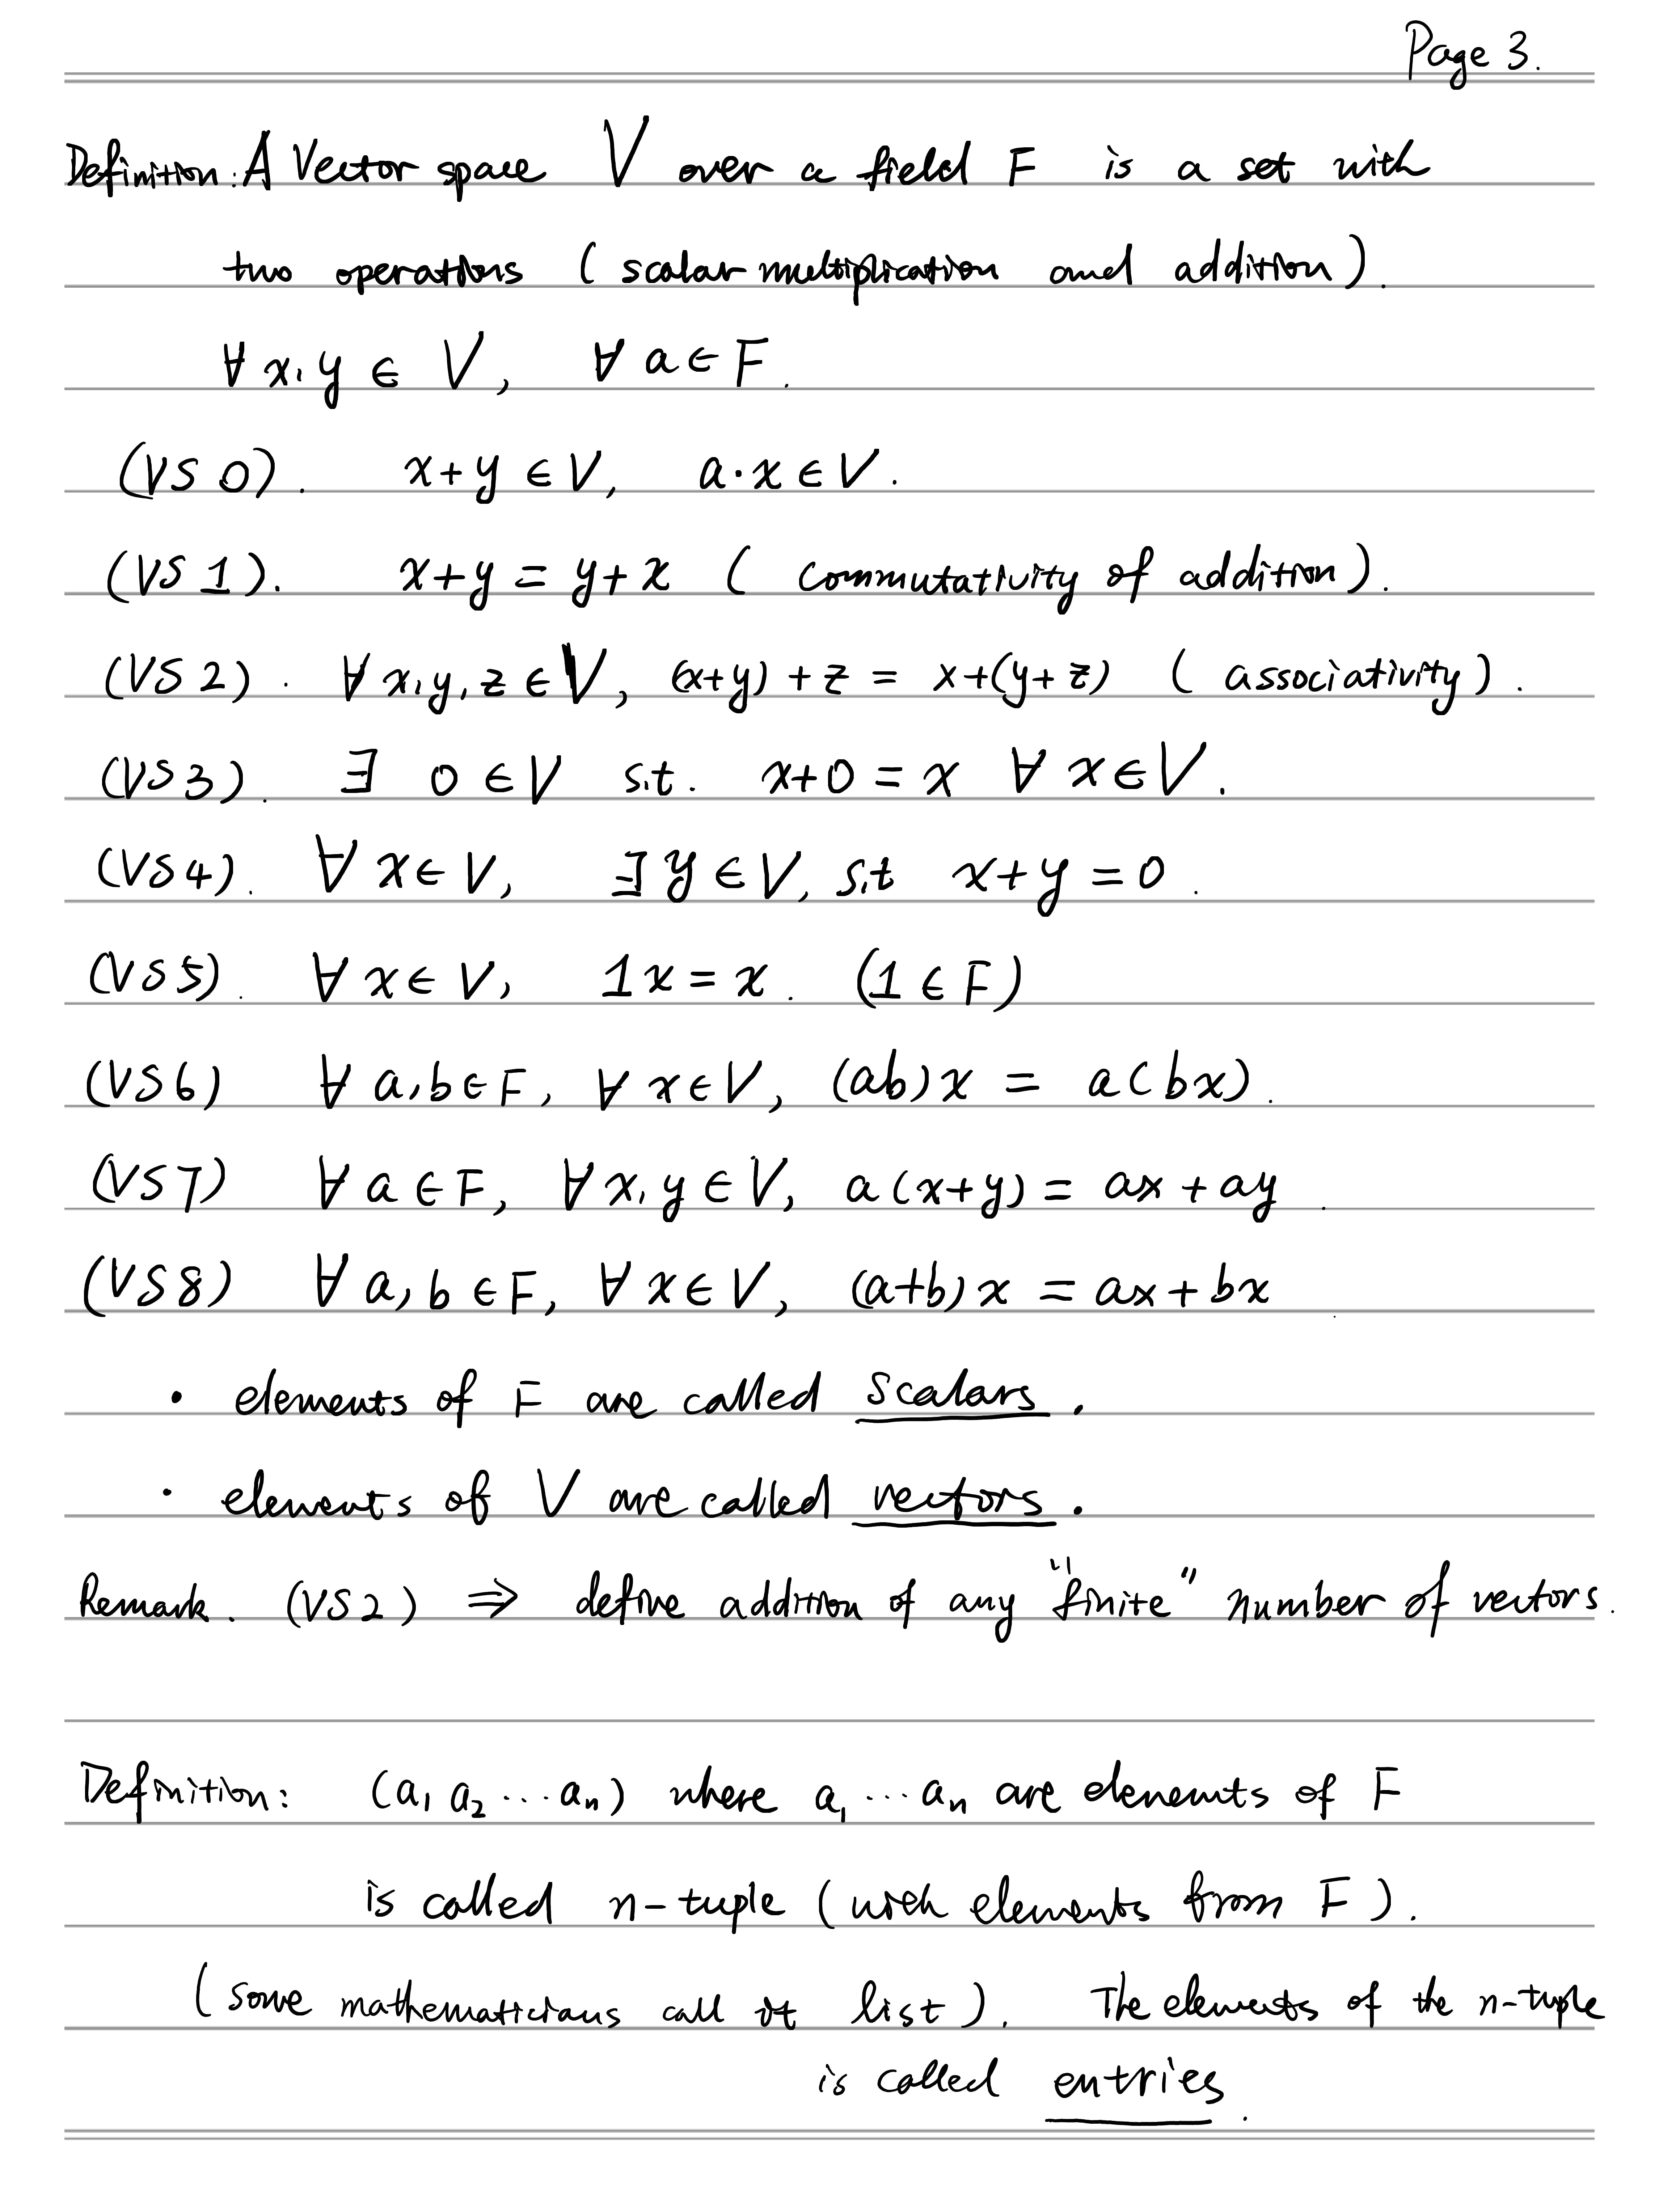 Page 3.
Definition: A Vector space V over a field F is a set with
two operations (scalar multiplication and addition).
∀ x, y ∈ V, ∀ a ∈ F.
(VS 0). x+y ∈ V, a·x ∈ V.
(VS 1). x+y = y+x (commutativity of addition).
(VS 2). ∀ x, y, z ∈ V, (x+y)+z = x+(y+z) (associativity).
(VS 3). ∃ 0 ∈ V s.t. x+0 = x ∀ x ∈ V.
(VS 4). ∀ x ∈ V, ∃ y ∈ V, s.t x+y = 0.
(VS 5). ∀ x ∈ V, 1x = x. (1 ∈ F)
(VS 6) ∀ a, b ∈ F, ∀ x ∈ V, (ab)x = a(bx).
(VS 7) ∀ a ∈ F, ∀ x, y ∈ V, a(x+y) = ax+ay.
(VS 8) ∀ a, b ∈ F, ∀ x ∈ V, (a+b)x = ax+bx.
• elements of F are called scalars.
• elements of V are called vectors.
Remark. (VS2) ⇒ define addition of any "finite" number of vectors.
Definition: (a₁ a₂ ... aₙ) where a₁ ... aₙ are elements of F
is called n-tuple (with elements from F).
(some mathematicians call it list). The elements of the n-tuple
is called entries.